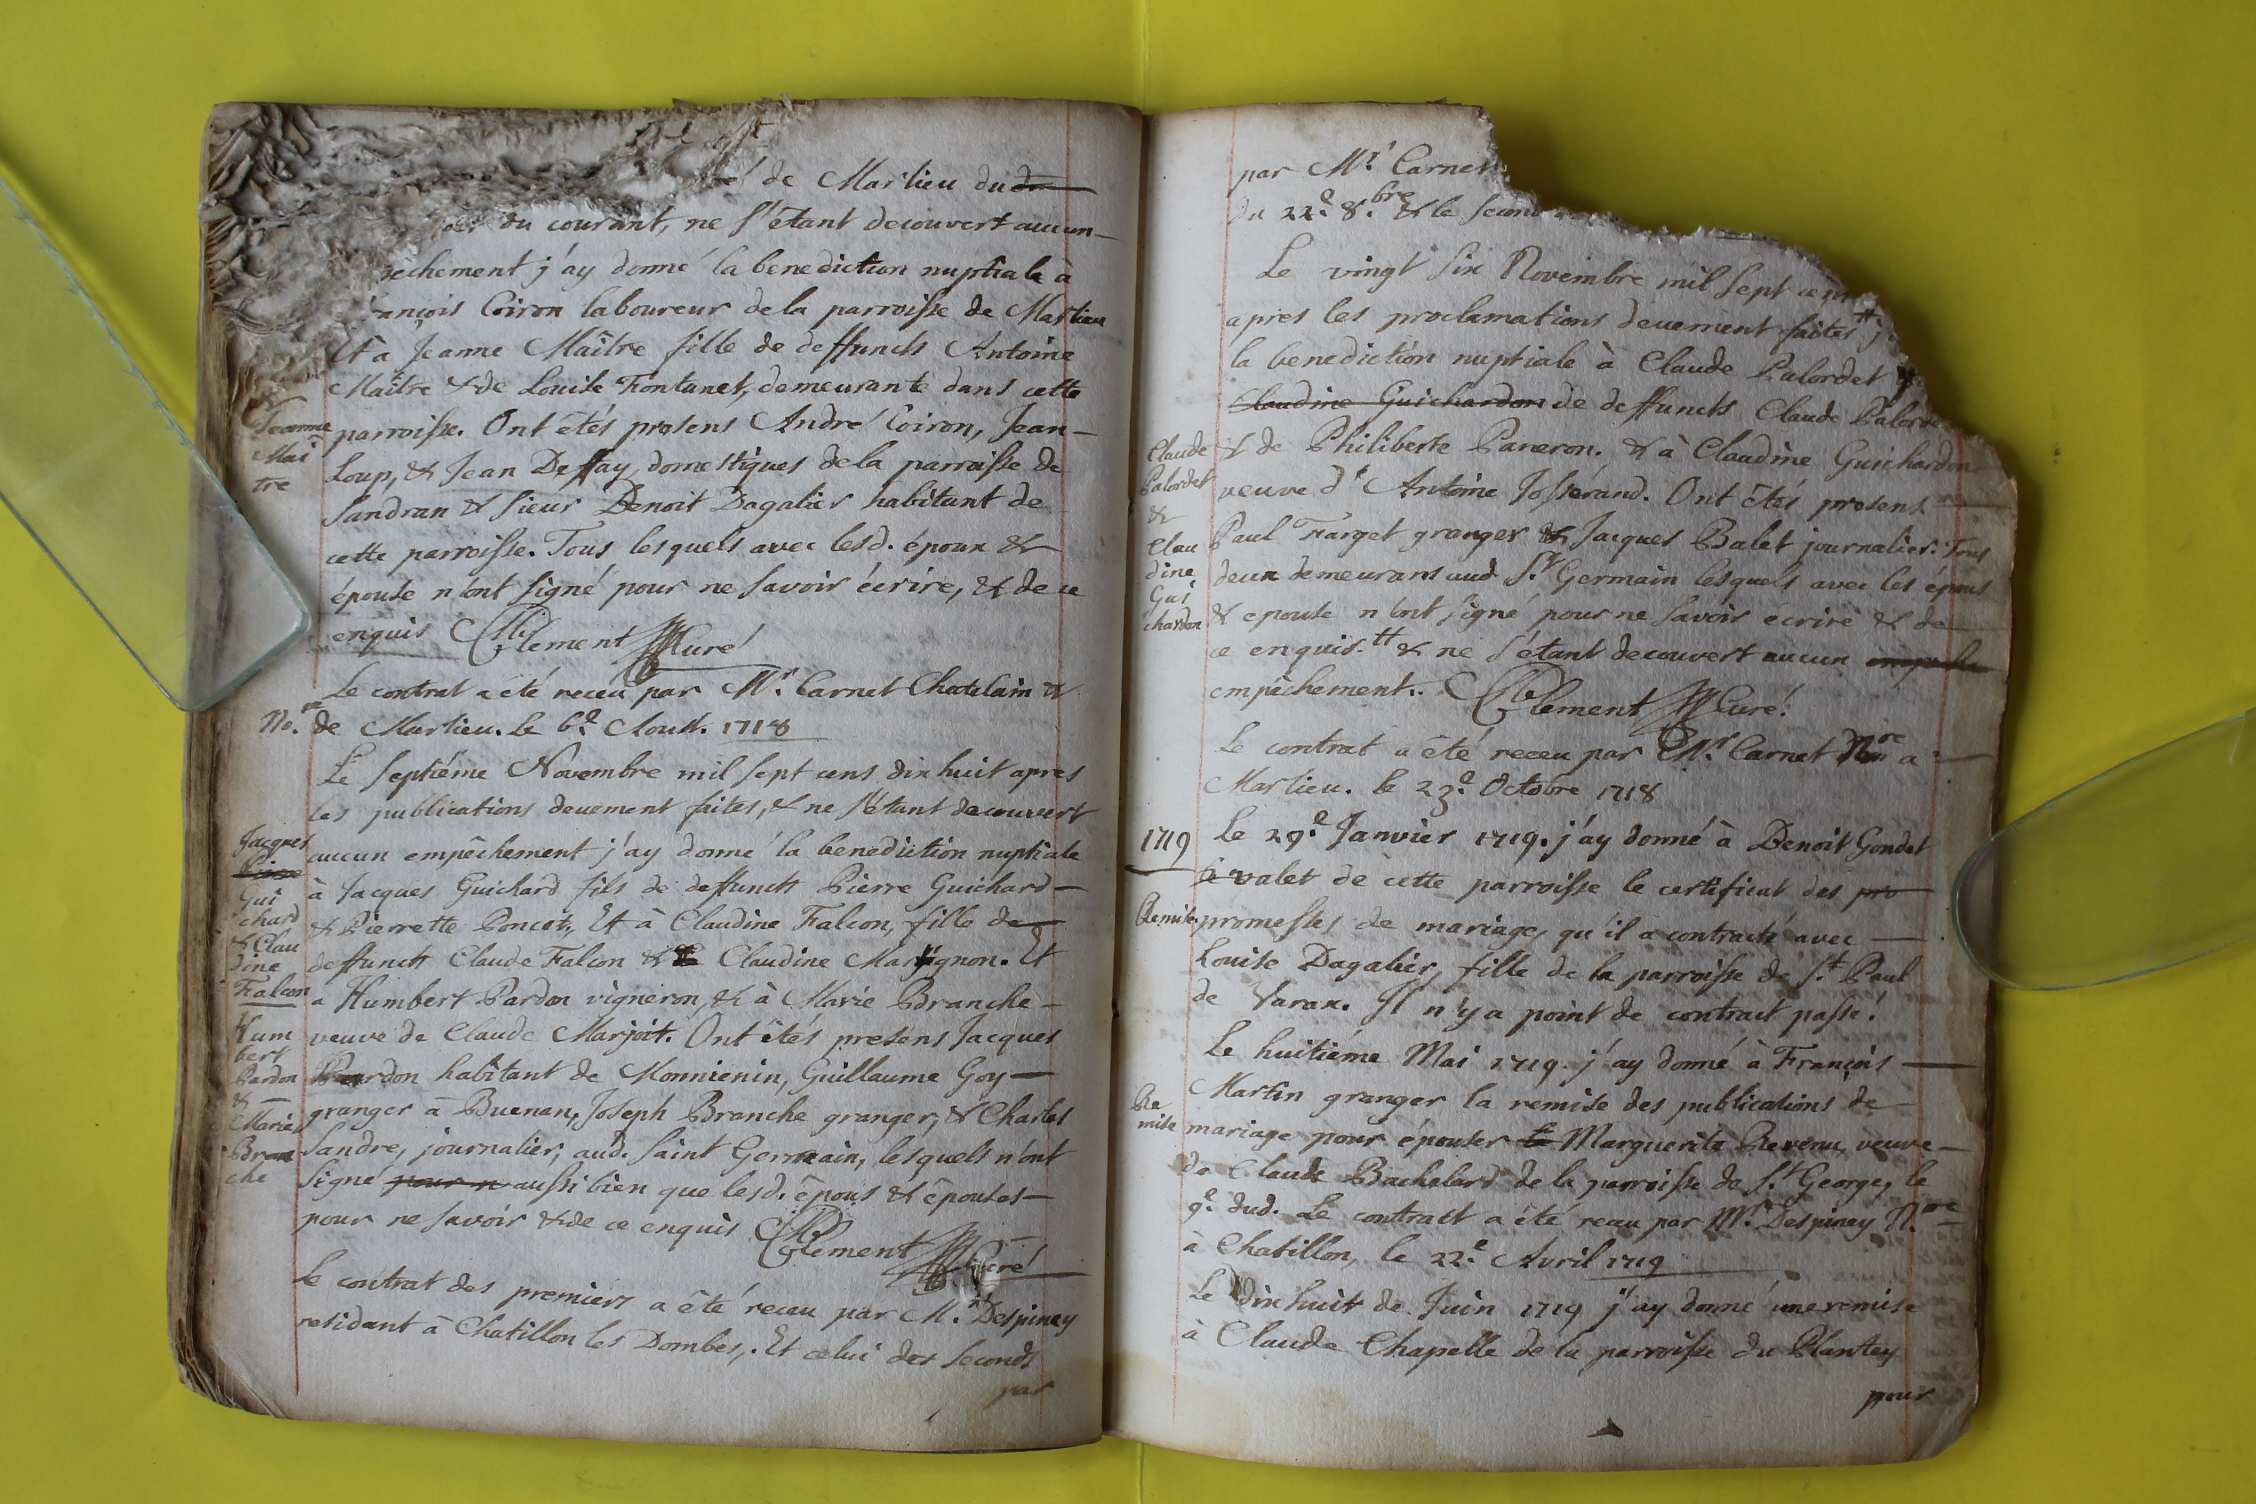 de Marlieu du
du courant, ne s'étant decouvert aucun
êchement j'ay donné la benediction nuptiale à
ançois Coiron laboureur de la parroisse de Marlieu
Et à Jeanne Maître fille de deffuncts Antoine
Maître & de Louise Fontanet, demeurante dans cette
Jeanne
Mai
tre
parroisse. Ont êtés presens André Coiron, Jean
Loup, & Jean Deffay, domestiques de la parroisse de
Sandran & sieur Benoit Dagalier habitant de
cette parroisse. Tous lesquels avec lesd. époux &
épouse n'ont signé pour ne savoir écrire, & de ce
enquis Clement Curé
Le contrat a été receu par Mr. Carnet Chatelain &
No.re de Marlieu. Le 6e. Aoust. 1718
Le septiéme Novembre mil sept cens dix huit apres
les publications deuement faites, & ne s'étant decouvert
Jacques
Gui
chard
& Clau
dine
Falcon
aucun empêchement j'ay donné la benediction nuptiale
à Jacques Guichard fils de deffunct Pierre Guichard
& Pierrette Poncet, Et à Claudine Falcon, fille de
deffunct Claude Falcon & Claudine Marjignon. Et
a Humbert Pardon vigneron, & à Marie Branche
Hum
bert
Pardon
&
Marie
Bran
che
veuve de Claude Marjoit. Ont êtés presens Jacques
Pardon habitant de Monnienin, Guillaume Goy
granger à Buenan, Joseph Branche granger, & Charles
Sandre, journalier, aud. Saint Germain, lesquels n'ont
signé pour n aussi bien que lesd. époux & épouses
pour ne savoir & de ce enquis Clement Curé
Le contrat des premiers a êté receu par Mr. Despiney
residant à Chatillon les Dombes,. Et celui des seconds
par
par Mr. Carnet
du 22e. 8.bre & le second
Le vingt six Novembre mil sept cen
apres les proclamations deuement faites tt j
la benediction nuptiale à Claude Palordet
Claudine Guichardon de deffuncts Claude Palorde
Claude
Palordet
&
Clau
dine
Gui
chardon
& de Philiberte Paneron. & à Claudine Guichardon
veuve d'Antoine Josserand. Ont êtés presens
Paul Farget granger & Jacques Balet journalier. Tous
deux demeurans aud St. Germain lesquels avec les époux
& epouse n'ont signé pour ne savoir écrire & de
ce enquis. tt & ne s'étant decouvert aucun
empêchement. Clement Curé.
Le contrat a été receu par Mr. Carnet Nre a
Marlieu. le 23e. Octobre 1718
1719
Le 29e. Janvier 1719. j'ay donné à Benoit Gondet
valet de cette parroisse le certificat des pro
Remise.
promesses de mariage, qu'il a contracté avec
Louise Dagalier, fille de la parroisse de St. Paul
de Varax. Il n'y a point de contract passé.
Le huitiéme Mai 1719. j'ay donné à François
Re
mise
Martin granger la remise des publications de
mariage pour épouser Marguerite Revenu, veuve
de Claude Bachelard de la parroisse de St. George, le
9e. dud. Le contract a été receu par Mr. Despiney N.re
à Chatillon, le 22e. Avril 1719
Le dix huit de Juin 1719 j'ay donné une remise
à Claude Chapelle de la parroisse du Plantey
pour